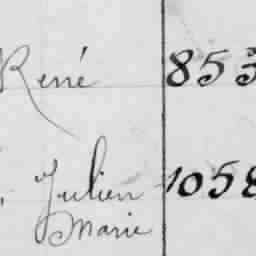 René 853
Julien 1058
Marie